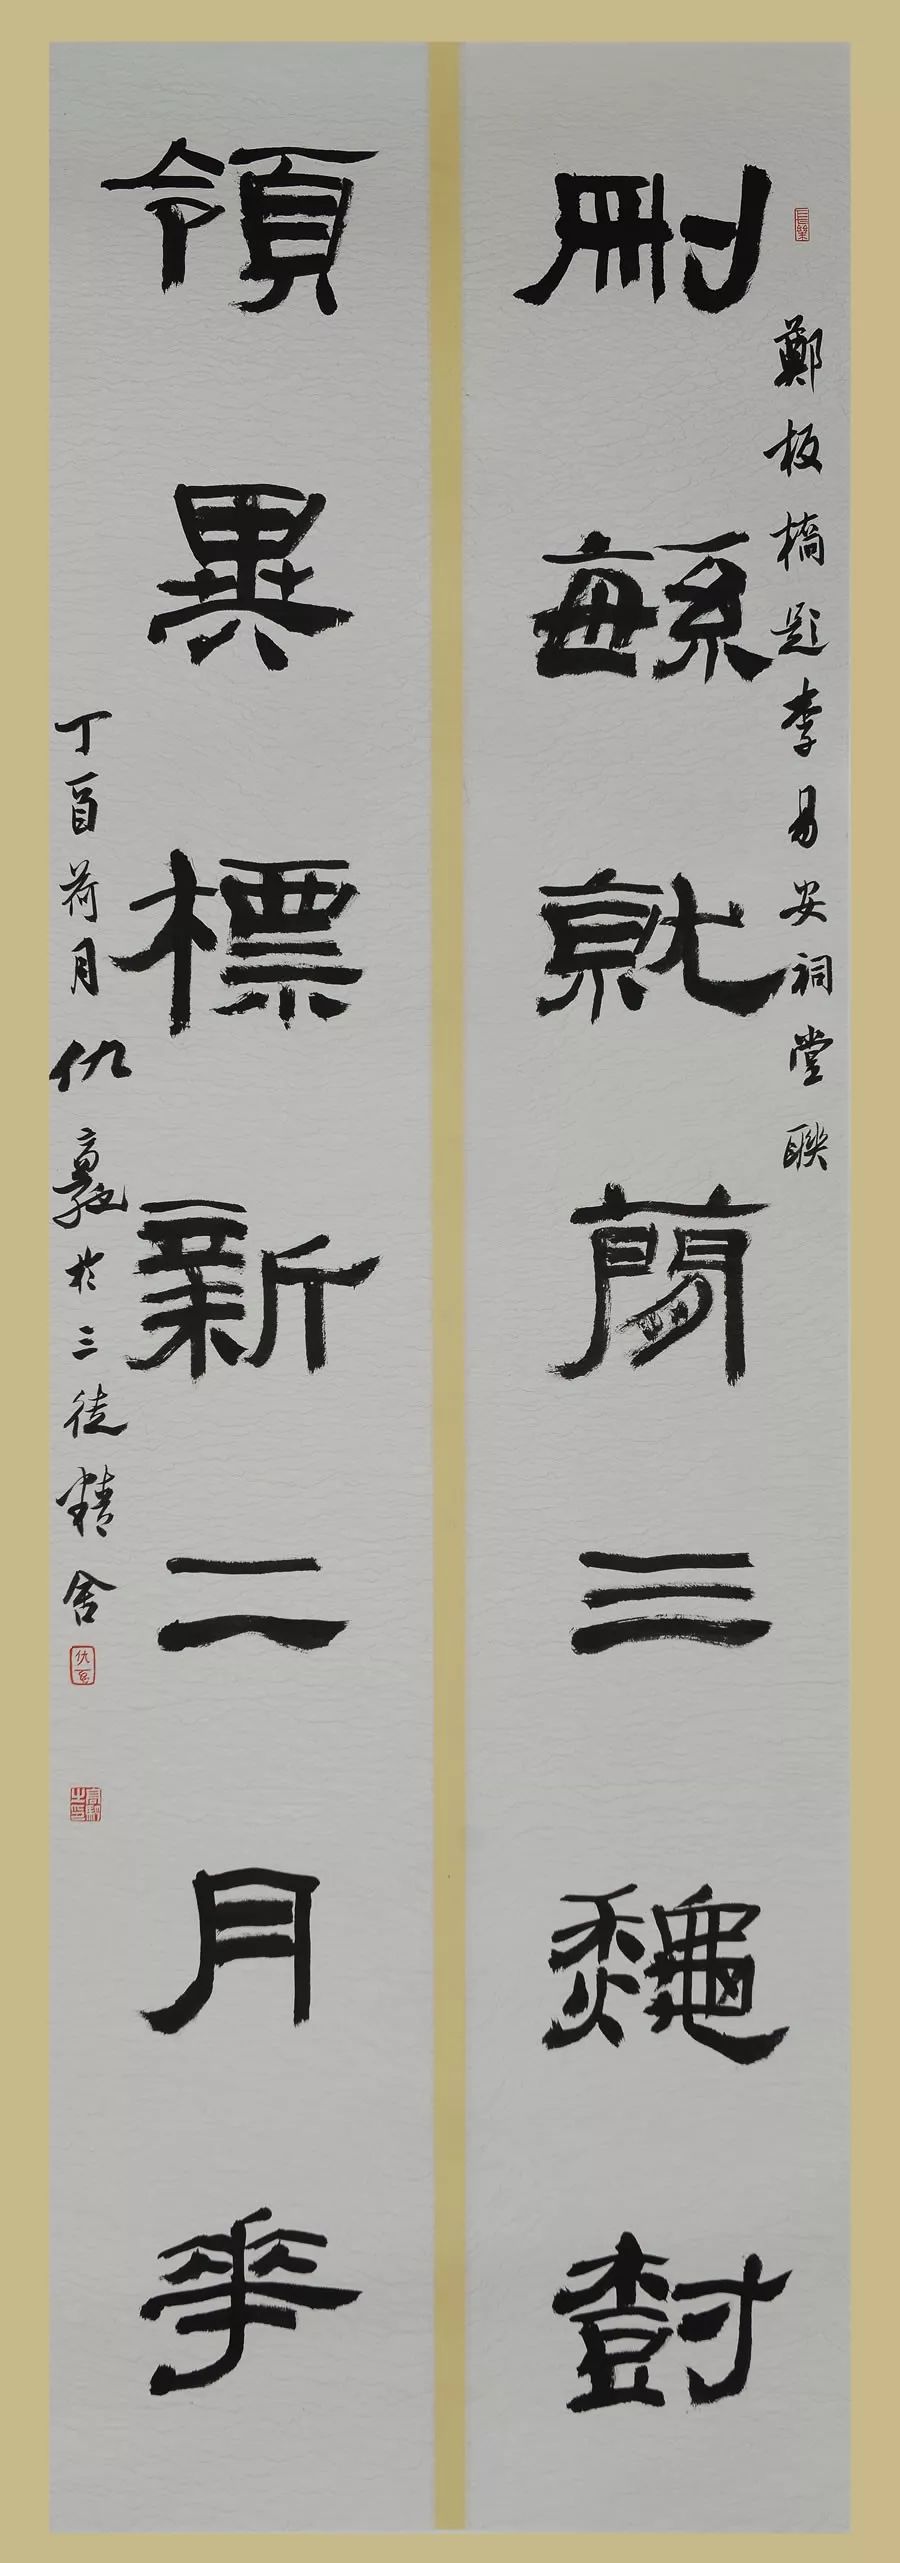 長樂
鄭板橋題李易安祠堂聯
刪緐就簡三龝樹
領異標新二月華
丁酉荷月仇於三徒精舍